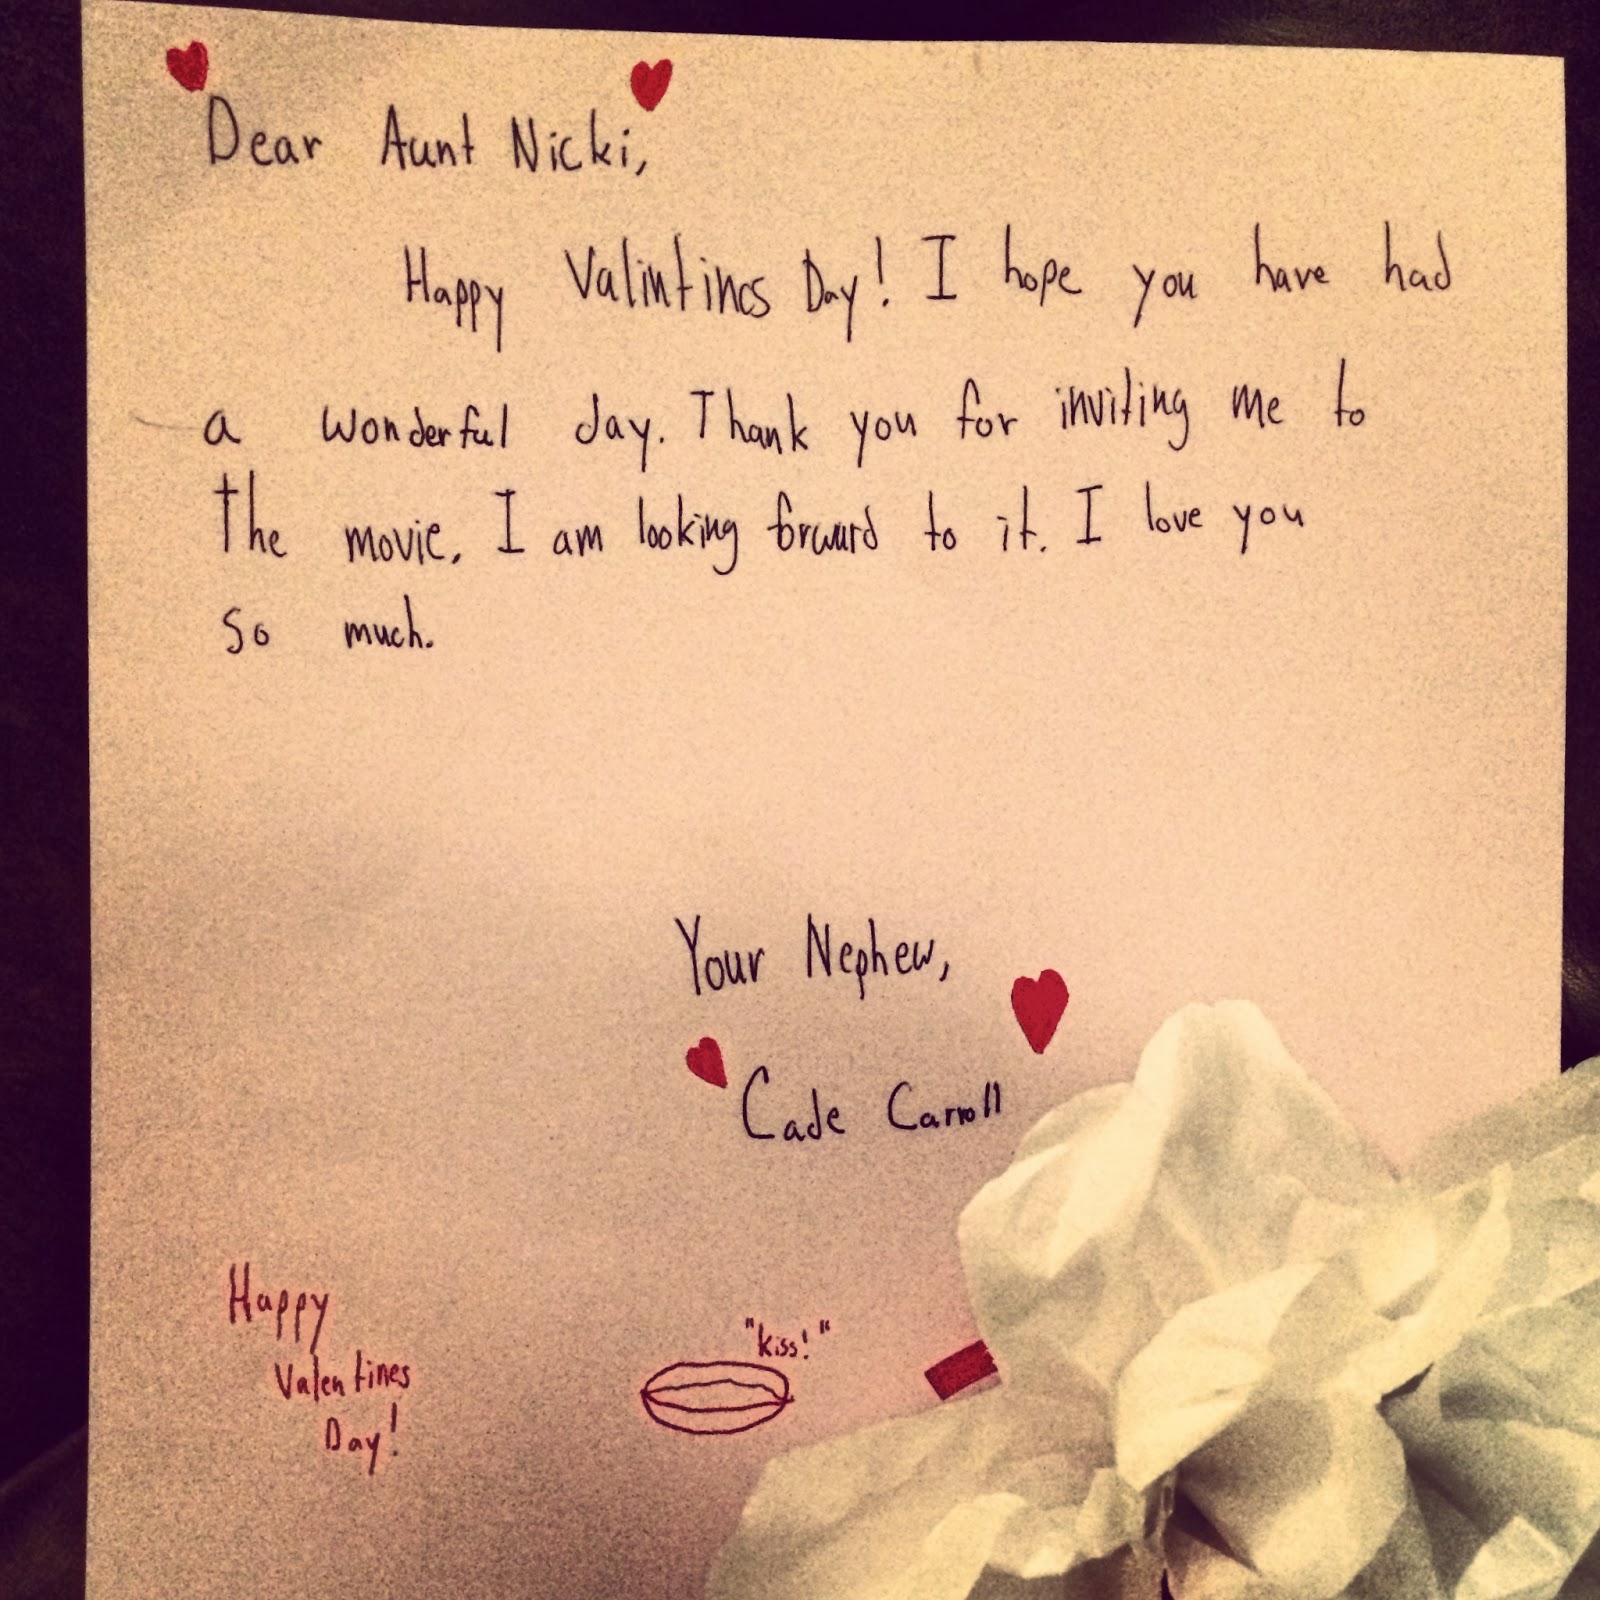 Dear Aunt Nicki,
Happy Valintines Day! I hope you have had
a wonderful day. Thank you for inviting me to
the movie. I am looking forward to it. I love you
so much.
Your Nephew,
Cade Carroll
Happy
Valentines
Day!
"kiss!"